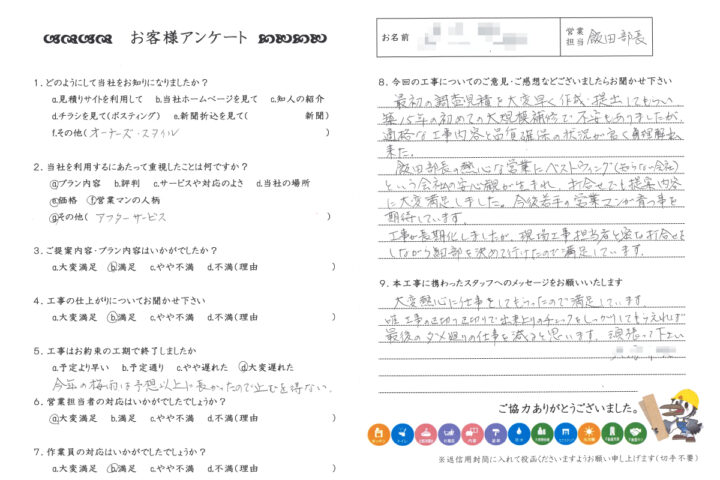 お客様アンケート
1. どのようにして当社をお知りになりましたか？
a.見積りサイトを利用して b.当社ホームページを見て c.知人の紹介
d.チラシを見て(ポスティング) e.新聞折込を見て( 新聞)
f.その他( オーナーズ・スタイル )
2. 当社を利用するにあたって重視したことは何ですか？
ⓐプラン内容 b.評判 c.サービスや対応のよさ d.当社の場所
ⓔ価格 ⓕ営業マンの人柄
ⓖその他( アフターサービス )
3. ご提案内容・プラン内容はいかがでしたか？
a.大変満足 ⓑ満足 c.やや不満 d.不満(理由 )
4. 工事の仕上がりについてお聞かせ下さい
a.大変満足 ⓑ満足 c.やや不満 d.不満(理由 )
5. 工事はお約束の工期で終了しましたか
a.予定より早い b.予定通り c.やや遅れた ⓓ大変遅れた
今年の梅雨は予想以上に長かったので止むを得ない.
6. 営業担当者の対応はいかがでしたでしょうか？
ⓐ大変満足 b.満足 c.やや不満 d.不満(理由 )
7. 作業員の対応はいかがでしたでしょうか？
a.大変満足 ⓑ満足 c.やや不満 d.不満(理由 )
お名前
営業
担当 飯田部長
8. 今回の工事についてのご意見・ご感想などございましたらお聞かせ下さい
最初の調査見積を大変早く作成・提出してもらい
築15年の初めての大規模補修で不安もありましたが、
適格な工事内容と品質確保の状況が良く理解出
来た。
飯田部長の熱心な営業にベストウィング
という会社の安心観が生まれ、打合せでも提案内容
に大変満足しました。今後若手の営業マンが育つ事を
期待しています。
工事が長期化しましたが、現場工事担当者と密な打合せを
しながら細部を決めて行けたので満足しています。
9. 本工事に携わったスタッフへのメッセージをお願いいたします
大変熱心に仕事をしてもらったので満足しています。
唯、工事の区切り区切りで出来上りのチェックをしっかりしてもらえれば
最後のダメ廻りの仕事も減ると思います。頑張って下さい
ご協力ありがとうございました。
※返信用封筒に入れて投函くださいますようお願い申し上げます(切手不要)